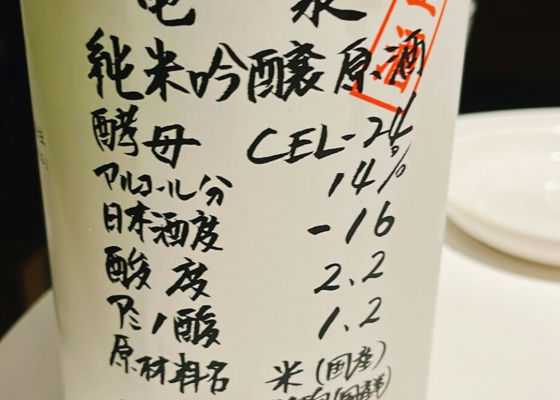 亀泉
純米吟醸原酒
酵母 CEL-24
アルコール分 14%
日本酒度 -16
酸度 2.2
アミノ酸 1.2
原材料名 米(国産)